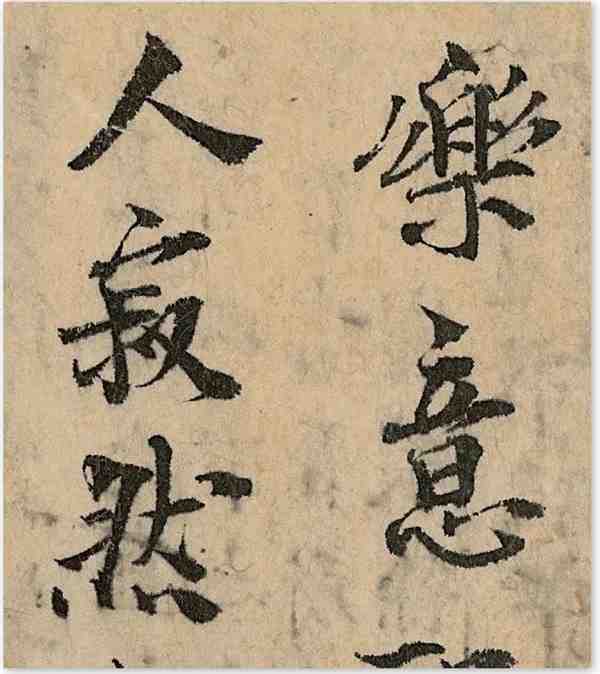 樂意
人寂然